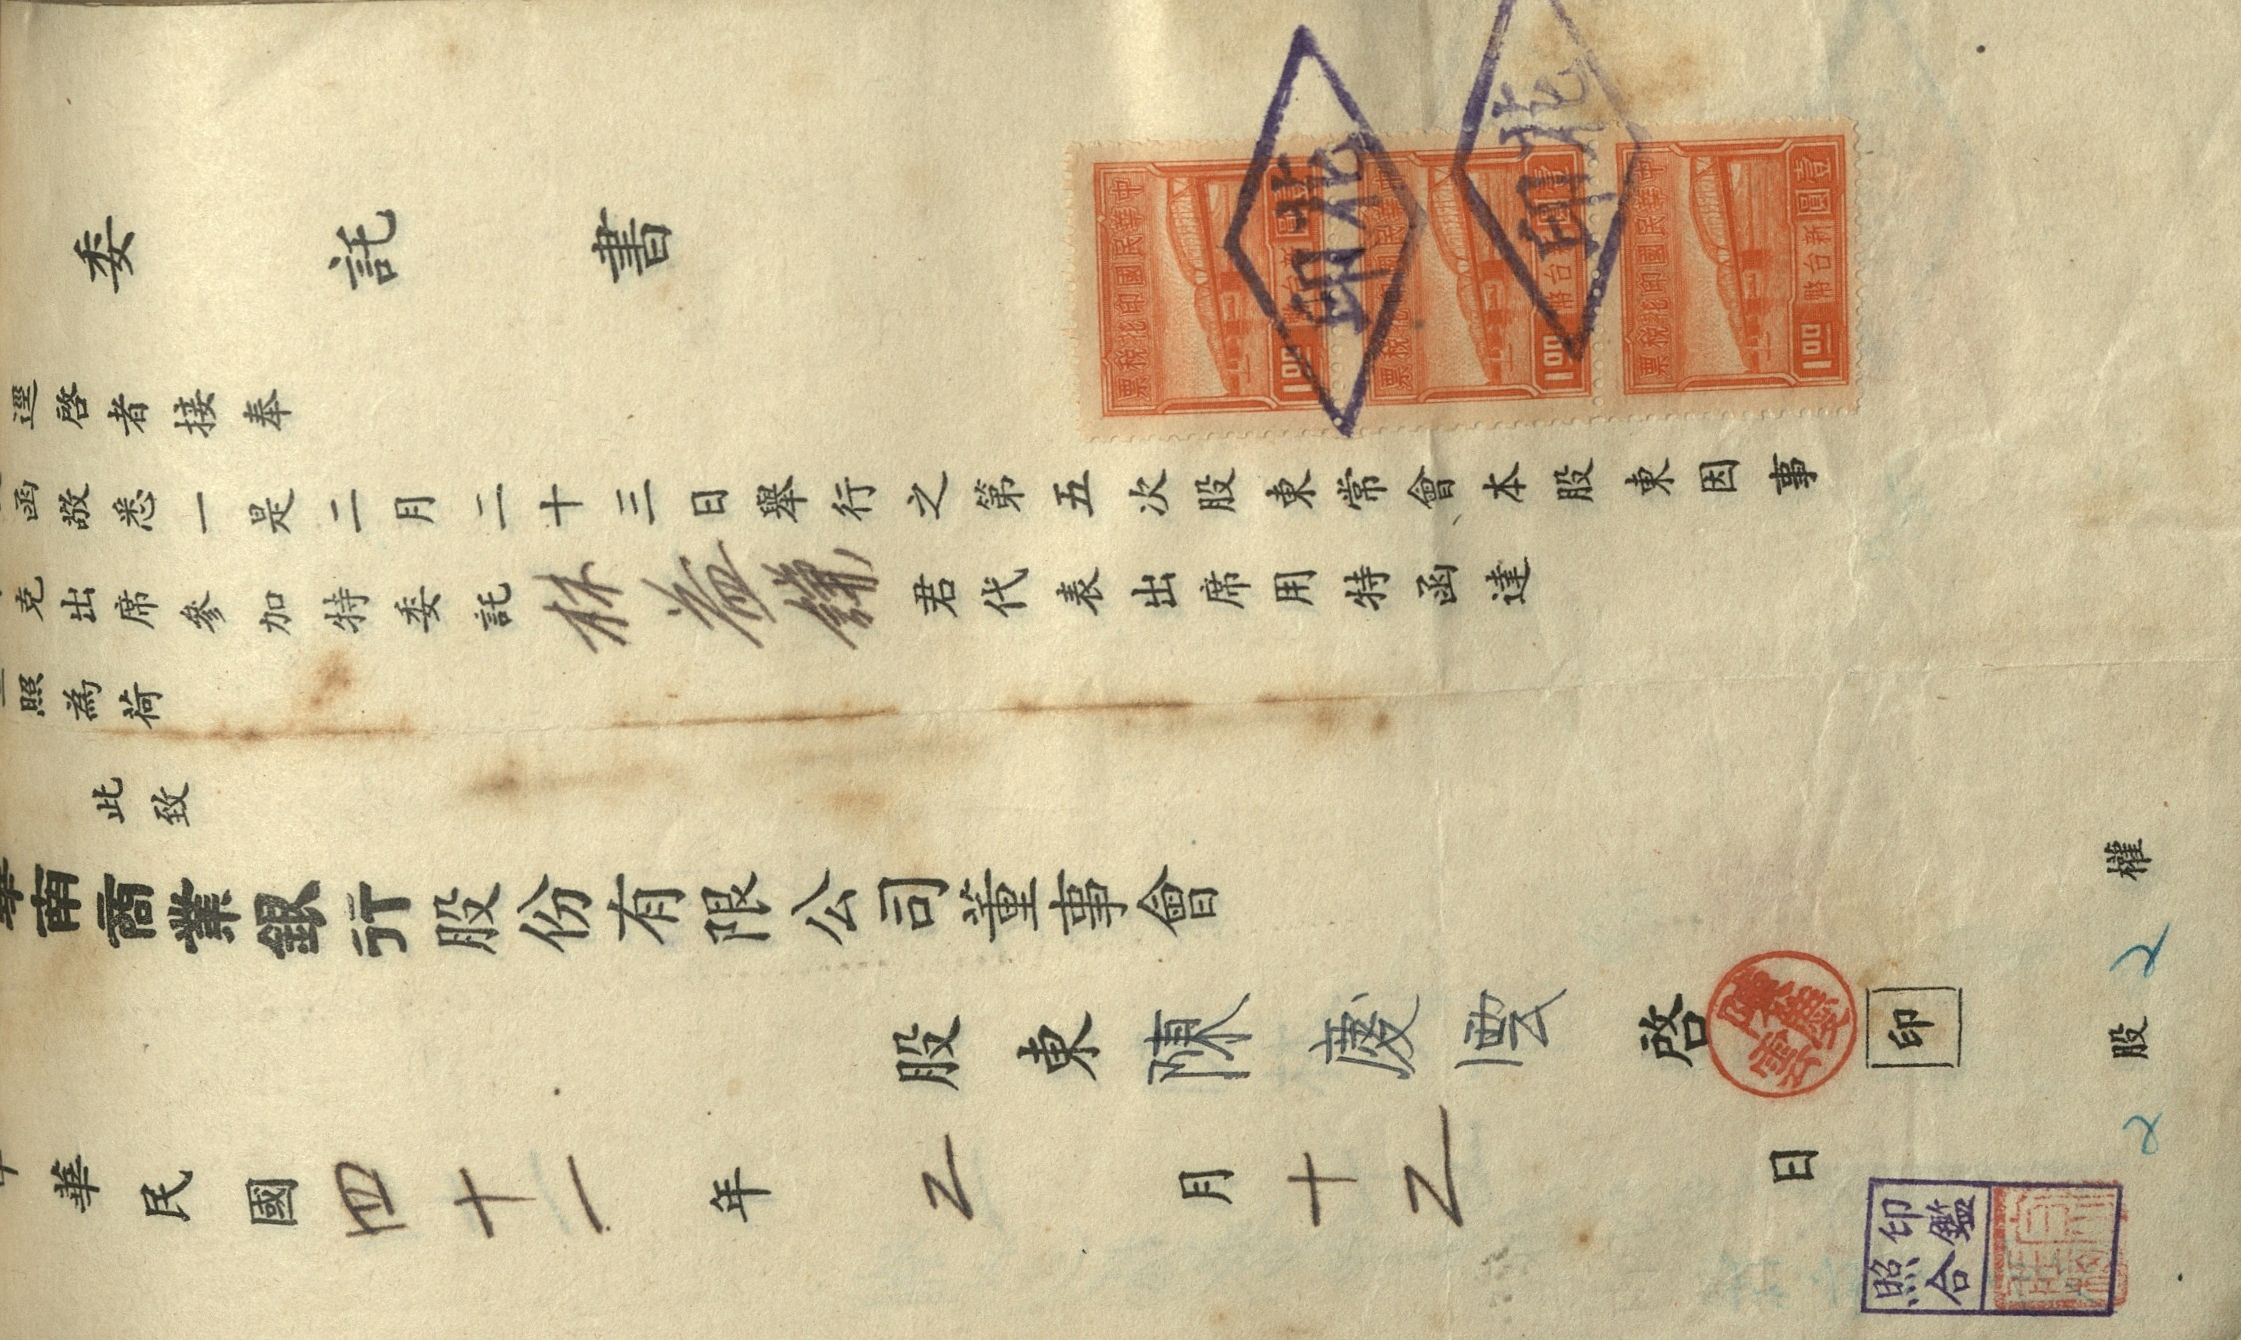 委託書
逕啓者接奉
函敬悉一是二月二十三日舉行之第五次股東常會本股東因事
克出席參加特委託林益謙君代表出席用特函達
照為荷
此致
華南商業銀行股份有限公司董事會
股東陳慶雲啓
印
中華民國四十一年2月十2日
股2權
2
中華民國印花稅票
壹圓
新台幣
1.00
中華民國印花稅票
壹圓
新台幣
1.00
中華民國印花稅票
壹圓
新台幣
1.00
北印
北印
陳慶雲
印鑑照合